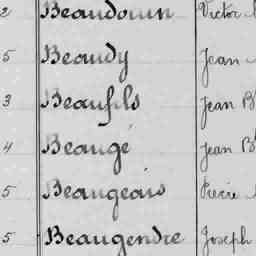 2 Beaudouin Victor
5 Beaudy Jean
3 Beaufils Jean Bte
4 Beaugé Jean Bte
5 Beaugeais Pierre
5 Beaugendre Joseph